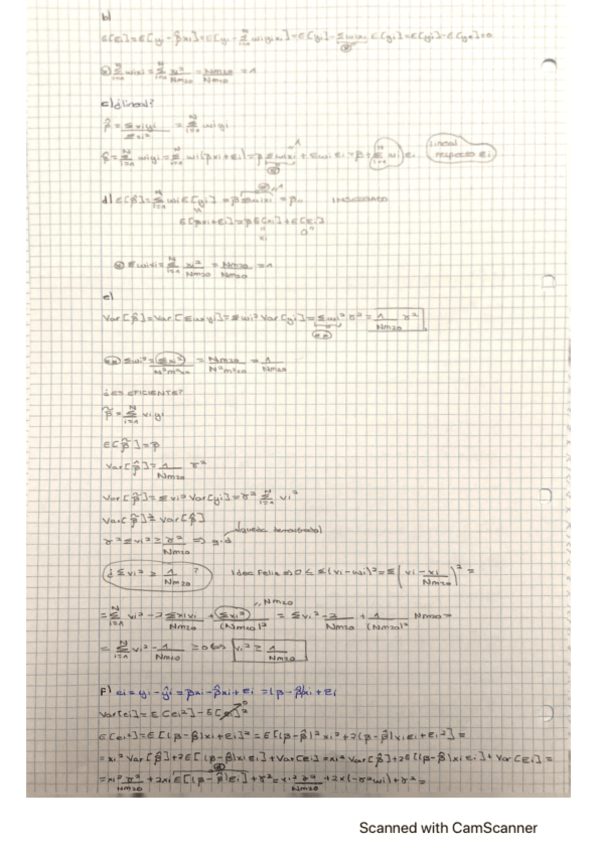 b)
E[ei]=E[yi-β̂xi]=E[yi-Σwiyixi]=E[yi]-Σwixi E[yi]=E[yi]-E[yi]=0
Σwixi=Σ xi²/Nm20 = Nm20/Nm20 =1
c) ¿lineal?
β̂=Σxiyi/Σxi² = Σwiyi
β̂=Σwiyi=Σwi(βxi+εi)=βΣwixi+Σwiεi=β+Σwiεi lineal respecto εi
d) E[β̂]=ΣwiE[yi]=βΣwixi=β INSESGADO
E[βxi+εi]=βE[xi]+E[εi]
xi 0
Σwixi=Σ xi²/Nm20 = Nm20/Nm20 =1
e)
Var[β̂]=Var[Σwiyi]=Σwi²Var[yi]=Σwi²σ²= 1/Nm20 σ²
Σwi²=Σxi²/N²m²20 = Nm20/N²m²20 = 1/Nm20
¿ES EFICIENTE?
β̃=Σviyi
E[β̃]=β
Var[β̂]= 1/Nm20 σ²
Var[β̃]=Σvi²Var[yi]=σ²Σvi²
Var[β̃]≥Var[β̂]
σ²Σvi²≥ σ²/Nm20 ⇒ q.d (queda demostrado)
¿Σvi²≥ 1/Nm20? Idea Feliz ⇒ 0≤Σ(vi-wi)²=Σ(vi- xi/Nm20)²=
Nm20
=Σvi²-2Σxivi/Nm20 + Σxi²/(Nm20)² = Σvi²- 2/Nm20 + 1/(Nm20)² Nm20=
=Σvi²- 1/Nm20 ≥0 ⇔ vi²≥ 1/Nm20
F) ei=yi-ŷi=βxi-β̂xi+εi=(β-β̂)xi+εi
Var[ei]=E[ei²]-E[ei]² 0
E[ei²]=E[(β-β̂)xi+εi]=E[(β-β̂)²xi²+2(β-β̂)xiεi+εi²]=
=xi²Var[β̂]+2E[(β-β̂)xiεi]+Var[εi]=xi²Var[β̂]+2E[(β-β̂)xiεi]+Var[εi]=
=xi² σ²/Nm20 +2xiE[(β-β̂)εi]+σ²=xi² σ²/Nm20 +2x(-σ²wi)+σ²=
Scanned with CamScanner